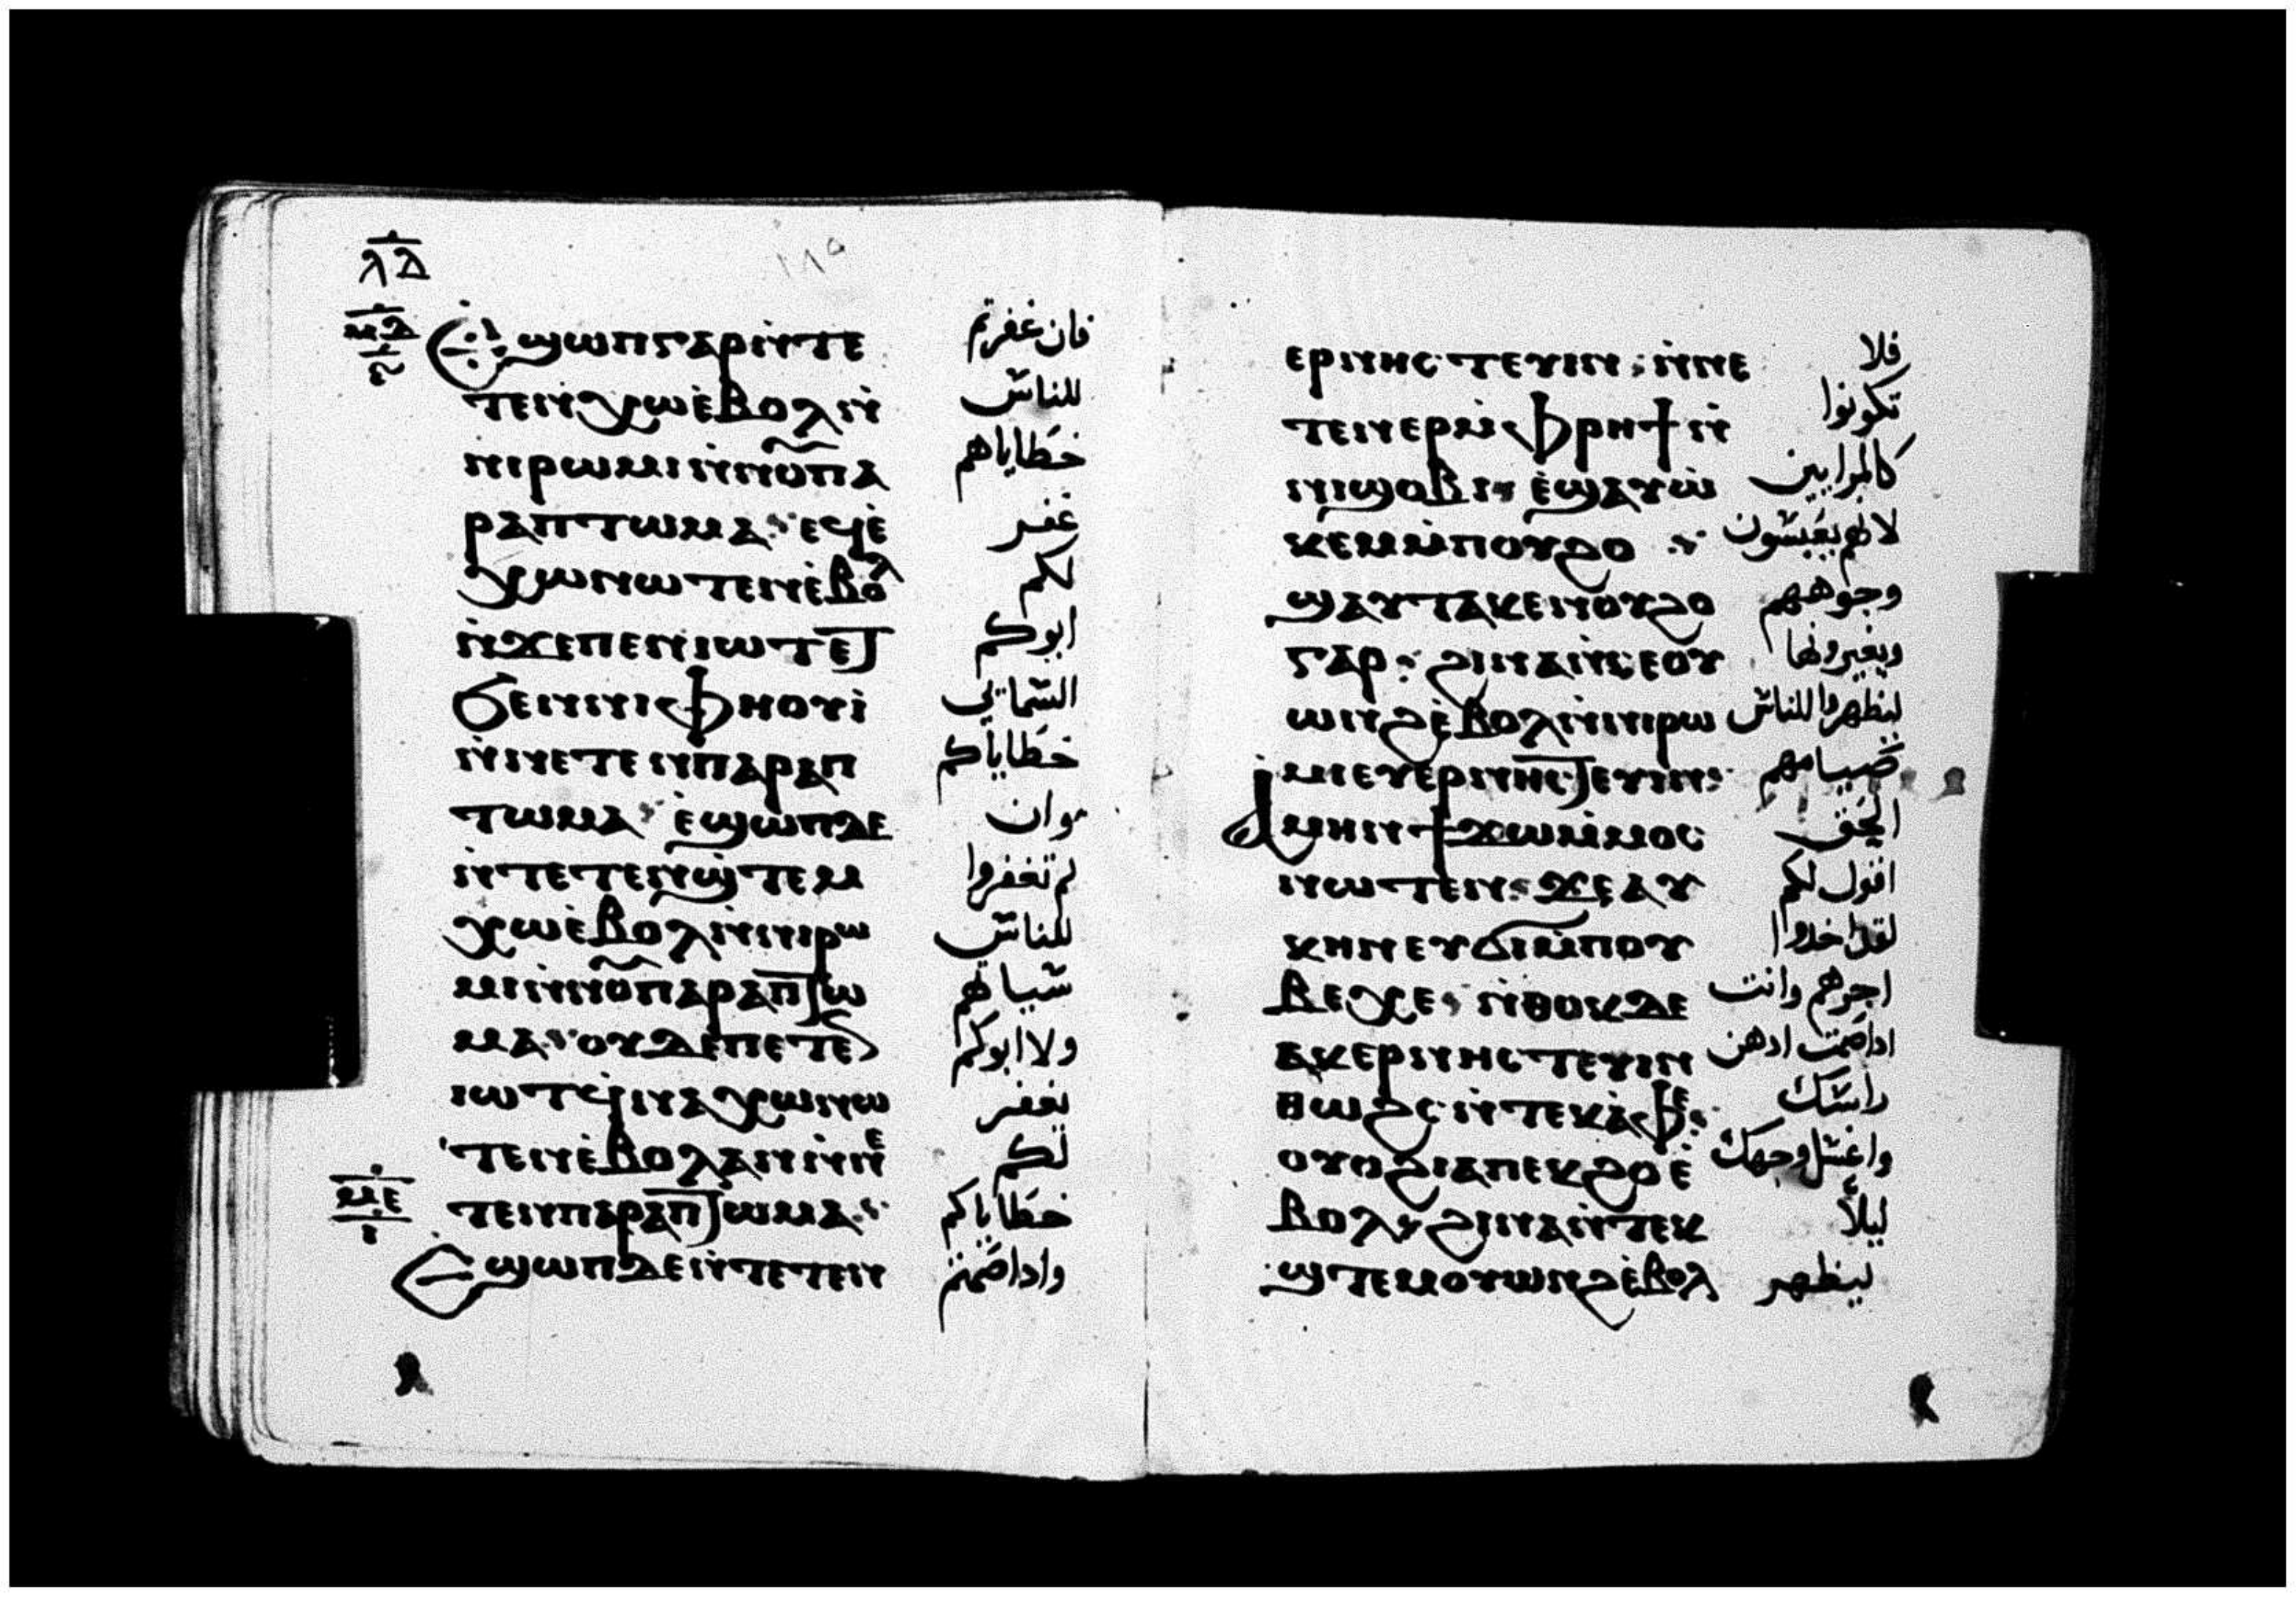 ⲗⲇ
ⲙⲇ
ⲉϣⲱⲡ ⲅⲁⲣ ⲛ̀ⲧⲉ فان غفرتم
ⲧⲉⲛⲭⲱ ⲉ̀ⲃⲟⲗ ⲛ̀ للناس
ⲛⲓⲣⲱⲙⲓ ⲛ̀ⲛⲟⲩⲡⲁ خطاياهم
ⲣⲁⲡⲧⲱⲙⲁ ⲉϥⲉ̀ غفر
ⲭⲱ ⲛⲱⲧⲉⲛ ⲉ̀ⲃⲟⲗ لكم
ⲛ̀ϫⲉ ⲡⲉⲛⲓⲱⲧ ⲉⲧ ابوكم
ϧⲉⲛ ⲛⲓⲫⲏⲟⲩⲓ̀ السماىي
ⲛ̀ⲛⲉⲧⲉⲛⲡⲁⲣⲁⲡ خطاياكم
ⲧⲱⲙⲁ ⲉ̀ϣⲱⲡ ⲇⲉ وان
ⲛ̀ⲧⲉⲧⲉⲛϣ̀ⲧⲉⲙ لم تغفروا
ⲭⲱ ⲉ̀ⲃⲟⲗ ⲛ̀ⲛⲓⲣⲱ للناس
ⲙⲓ ⲛ̀ⲛⲟⲩⲡⲁⲣⲁⲡⲧⲱ سياتهم
ⲙⲁ ⲟⲩⲇⲉ ⲡⲉⲧⲉⲛ ولا ابوكم
ⲓⲱⲧ ϥ̀ⲛⲁⲭⲱ ⲛⲱ يغفر
ⲧⲉⲛ ⲉ̀ⲃⲟⲗ ⲁⲛ ⲛ̀ⲛⲉ لكم
ⲧⲉⲛⲡⲁⲣⲁⲡⲧⲱⲙⲁ خطاياكم
ⲙⲉ
ⲓ
ⲉϣⲱⲡ ⲇⲉ ⲛ̀ⲧⲉⲧⲉⲛ واداصمتم
ⲉⲣⲛⲏⲥⲧⲉⲩⲓⲛ ⲛ̀ⲛⲉ فلا
ⲧⲉⲛⲉⲣ ⲙ̀ⲫⲣⲏϯ ⲛ̀ تكونوا
ⲛⲓϣⲟⲃⲓ ⲉ̀ϣⲁⲩⲱ̀ كالمرايين
ⲕⲉⲙ ⲙ̀ⲡⲟⲩϩⲟ لانهم يعبسون
ϣⲁⲩⲧⲁⲕⲉ ⲛⲟⲩϩⲟ وجوههم
ⲅⲁⲣ ϩⲓⲛⲁ ⲛ̀ⲥⲉⲟⲩ ويغيرونها
ⲱⲛϩ ⲉ̀ⲃⲟⲗ ⲛ̀ⲛⲓⲣⲱ ليظهروا للناس
ⲙⲓ ⲉⲩⲉⲣⲛⲏⲥⲧⲉⲩⲓⲛ صيامهم
ⲁⲙⲏⲛ ϯϫⲱ ⲙ̀ⲙⲟⲥ الحق
ⲛⲱⲧⲉⲛ ϫⲉ ⲁⲩ اقول لكم
ⲕⲏⲛ ⲉⲩϭⲓ ⲙ̀ⲡⲟⲩ لقد اخدوا
ⲃⲉⲭⲉ ⲛ̀ⲑⲟⲕ ⲇⲉ اجرهم وانت
ⲁⲕⲉⲣⲛⲏⲥⲧⲉⲩⲓⲛ اداصمت ادهن
ⲑⲱϩⲥ ⲛ̀ⲧⲉⲕⲁ̀ⲫⲉ راسك
ⲟⲩⲟϩ ⲓⲁ ⲡⲉⲕϩⲟ ⲉ̀ واغسل وجهك
ⲃⲟⲗ ϩⲓⲛⲁ ⲛ̀ⲧⲉⲕ ليلا
ϣ̀ⲧⲉⲙⲟⲩⲱⲛϩ ⲉ̀ⲃⲟⲗ ليظهر